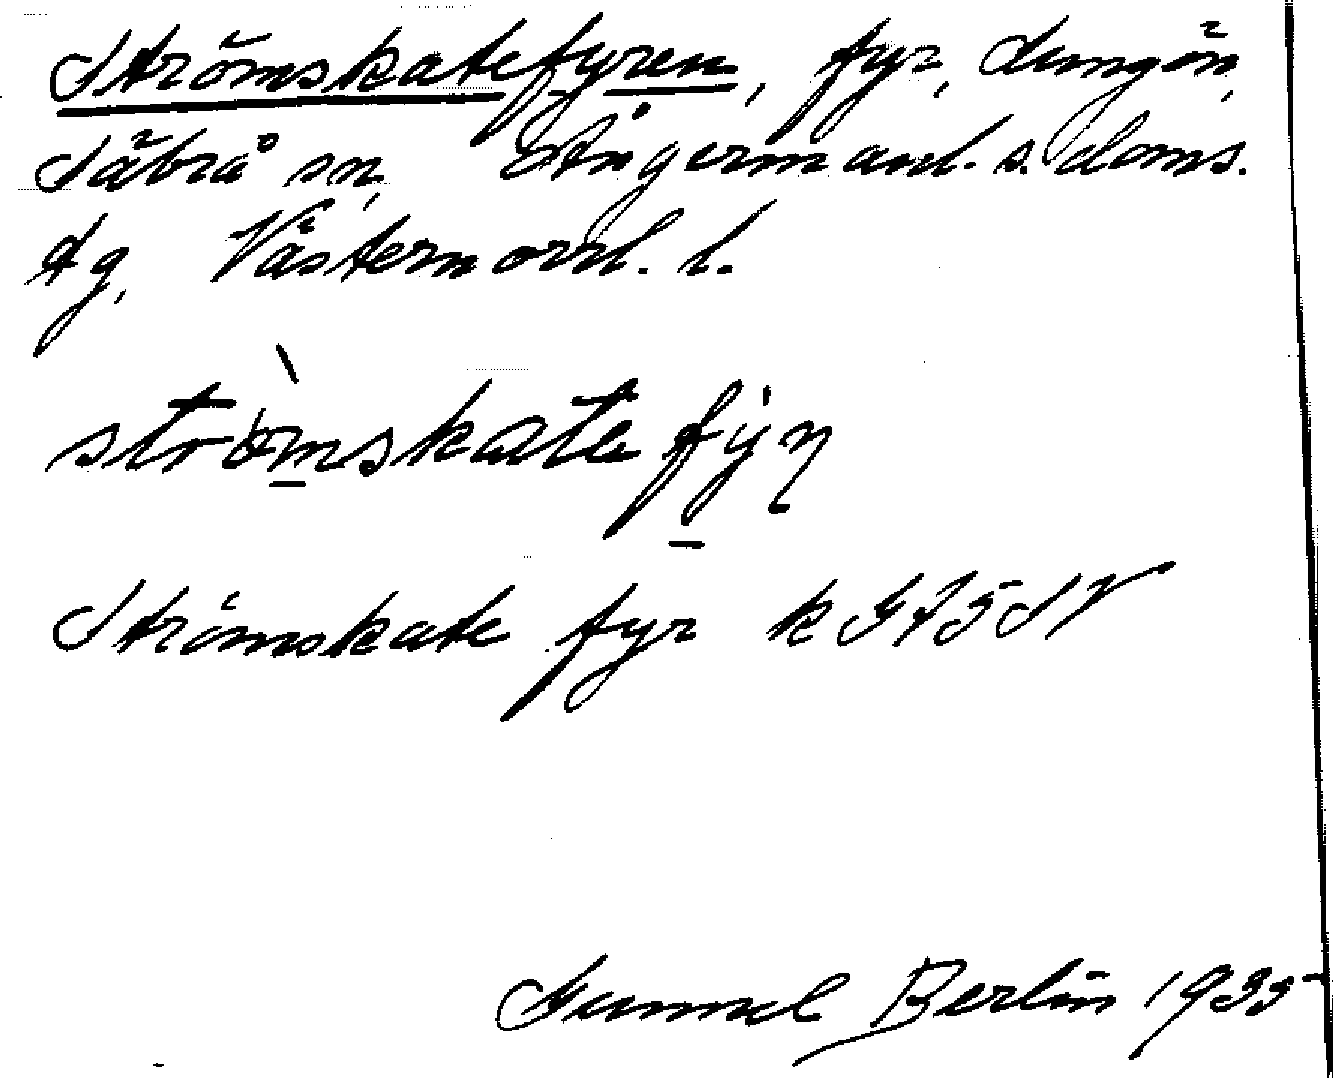 Strömskatefyren, fyr, Lungön,
Säbrå sn, Ångermanl. s. doms.
tg, Västernorrl. l.
strömskatafýṇ
Strömskate fyr k G 75 SV
Gunnel Berlin 1935